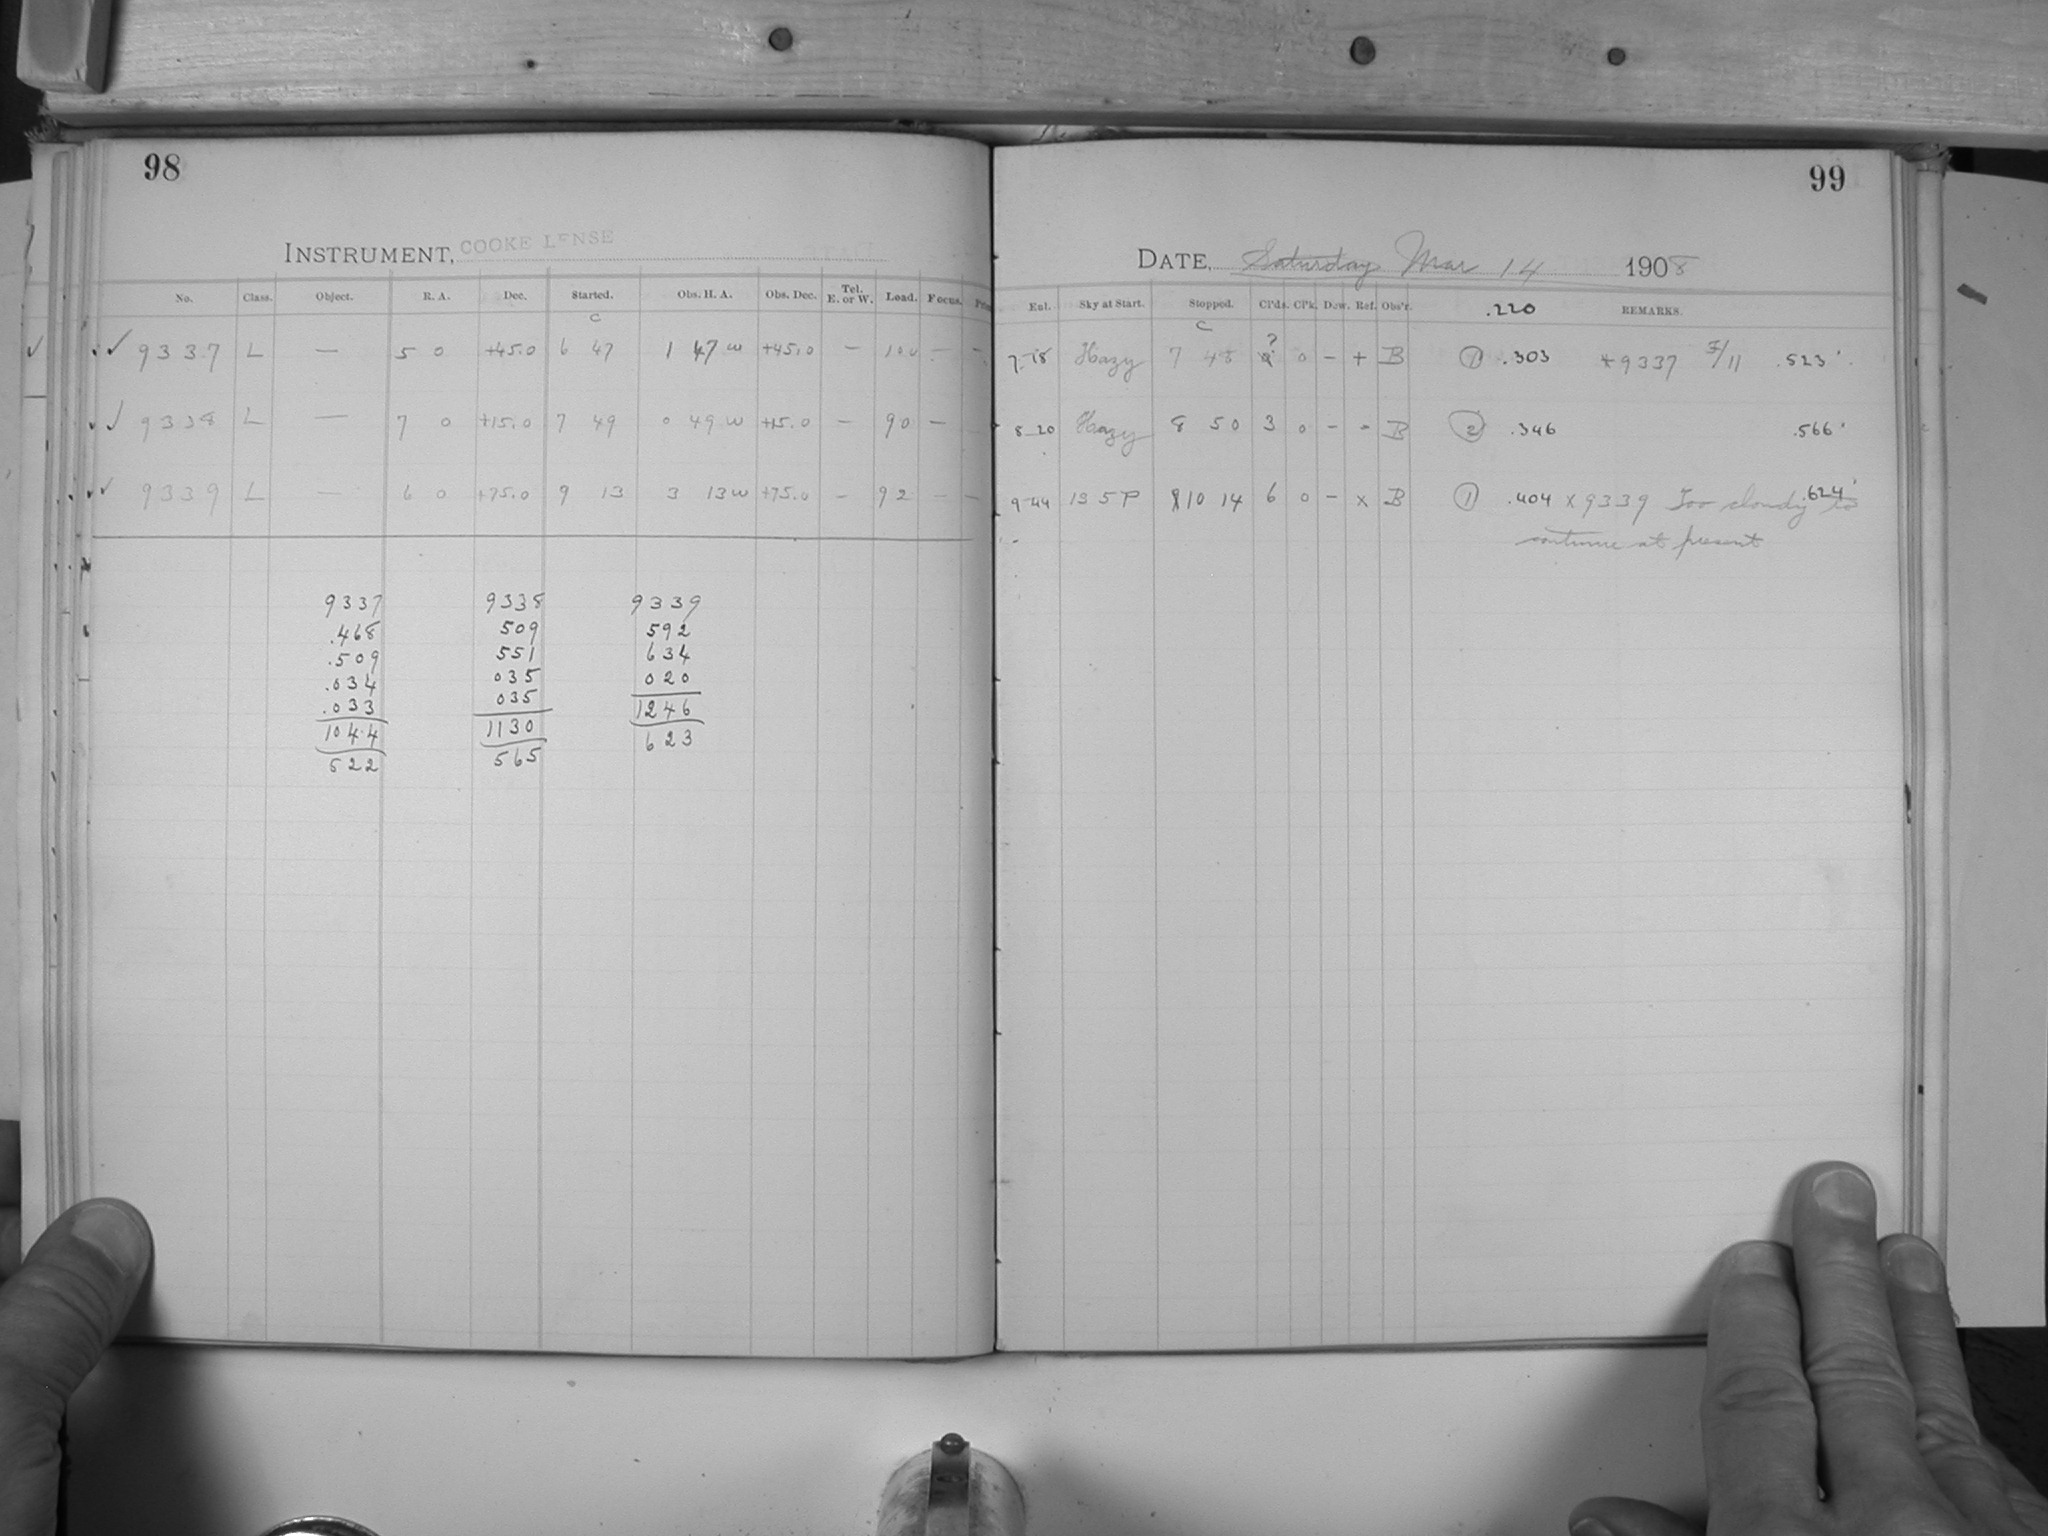 98
INSTRUMENT, COOKE LENSE
No. Class. Object. R. A. Dec. Started. Obs. H. A. Obs. Dec. Tel. E. or W. Load. Focus.
c
✓ ✓ 9337 L — 5 0 +45.0 6 47 1 47 w +45.0 — 100 — —
✓ 9338 L — 7 0 +15.0 7 49 0 49 w +15.0 — 90 —
✓ 9339 L — 6 0 +75.0 9 13 3 13 w +75.0 — 92 — —
9337 9338 9339
.468 509 592
.509 551 634
.034 035 020
.033 035 1246
1044 1130 623
522 565
99
DATE, Saturday Mar 14 1908
Ent. Sky at Start. Stopped. Cl'ds. Cl'k. Dew. Ref. Obs'r. .220 REMARKS.
c ?
7-18 Hazy 7 48 0 - + B ① .303 *9337 .523'
8-20 Hazy 8 50 3 0 - - B ② .346 .566'
9-44 135P 10 14 6 0 - x B ① .404 x 9339 Too cloudy to .624'
continue at present